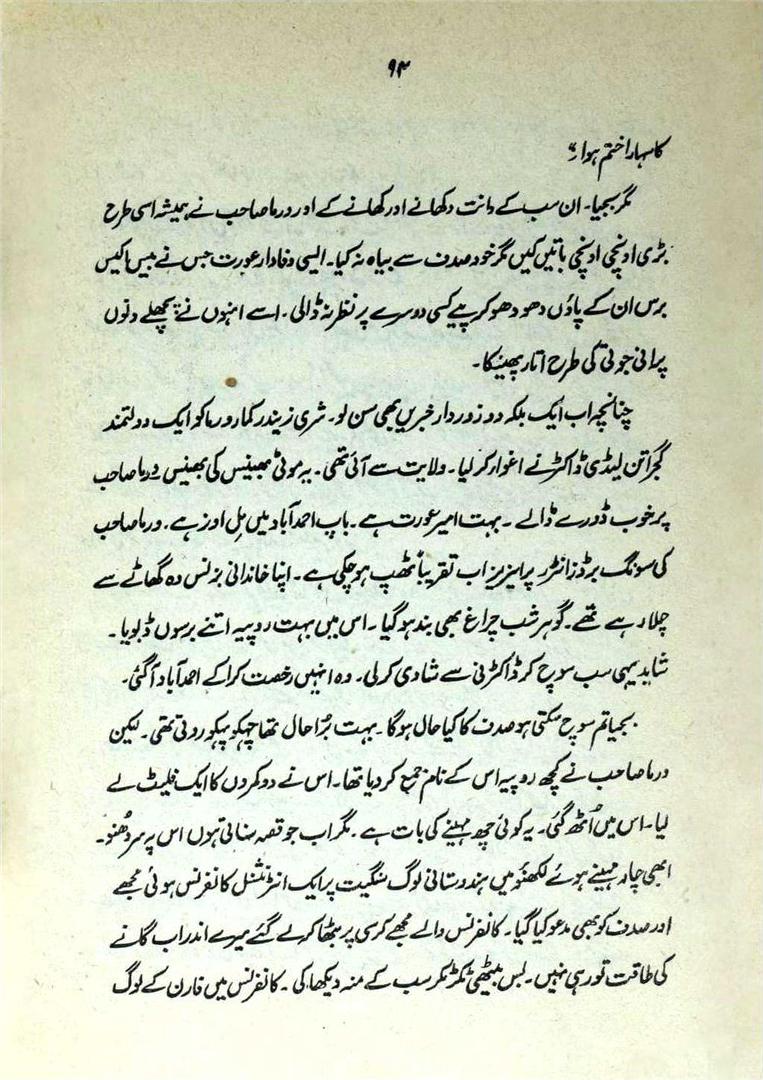 ۹۳
کا سہارا ختم ہوا۔“
مگر بجیا۔ ان سب کے دانت دکھانے اور کھانے کے اور ورما صاحب نے ہمیشہ اسی طرح
بڑی اونچی اونچی باتیں کیں مگر خود صدف سے بیاہ نہ کیا۔ ایسی وفادار عورت جس نے بیس اکیس
برس ان کے پاؤں دھو دھو کر پیے کسی دوسرے پر نظر نہ ڈالی۔ اسے انہوں نے پچھلے دنوں
پرانی جوتی کی طرح اتار پھینکا۔
چنانچہ اب ایک بلکہ دو زوردار خبریں بھی سن لو۔ شری نریندر کمار ورما کو ایک دولتمند
گجراتن لیڈی ڈاکٹر نے اغواء کر لیا۔ ولایت سے آئی تھی۔ یہ موٹی بھینس کی بھینس ورما صاحب
پر خوب ڈورے ڈالے۔ بہت امیر عورت ہے۔ باپ احمد آباد میں مل اونر ہے۔ ورما صاحب
کی سونگ برڈز انٹر پرائیزیز اب تقریباً ٹھپ ہو چکی ہے۔ اپنا خاندانی بزنس وہ گھاٹے سے
چلا رہے تھے۔ گوہر شب چراغ بھی بند ہو گیا۔ اس میں بہت روپیہ اتنے برسوں ڈبویا۔
شاید یہی سب سوچ کر ڈاکٹرنی سے شادی کر لی۔ وہ انہیں رخصت کرا کے احمد آباد آ گئی۔
بجیا تم سوچ سکتی ہو صدف کا کیا حال ہوگا۔ بہت بُرا حال تھا چہکو پہکو روتی تھی۔ لیکن
ورما صاحب نے کچھ روپیہ اس کے نام جمع کر دیا تھا۔ اس نے دو کمروں کا ایک فلیٹ لے
لیا۔ اس میں اُٹھ گئی۔ یہ کوئی چھ مہینے کی بات ہے۔ مگر اب جو قصہ سناتی ہوں اس پر سر دُھنو۔
ابھی چار مہینے ہوئے لکھنؤ میں ہندوستانی لوگ سنگیت پر ایک انٹرنیشنل کانفرنس ہوئی مجھے
اور صدف کو بھی مدعو کیا گیا۔ کانفرنس والے مجھے کرسی پر بٹھا کر لے گئے میرے اندر اب گانے
کی طاقت تو رہی نہیں۔ بس بیٹھی ٹکر ٹکر سب کے منہ دیکھا کی۔ کانفرنس میں فارن کے لوگ